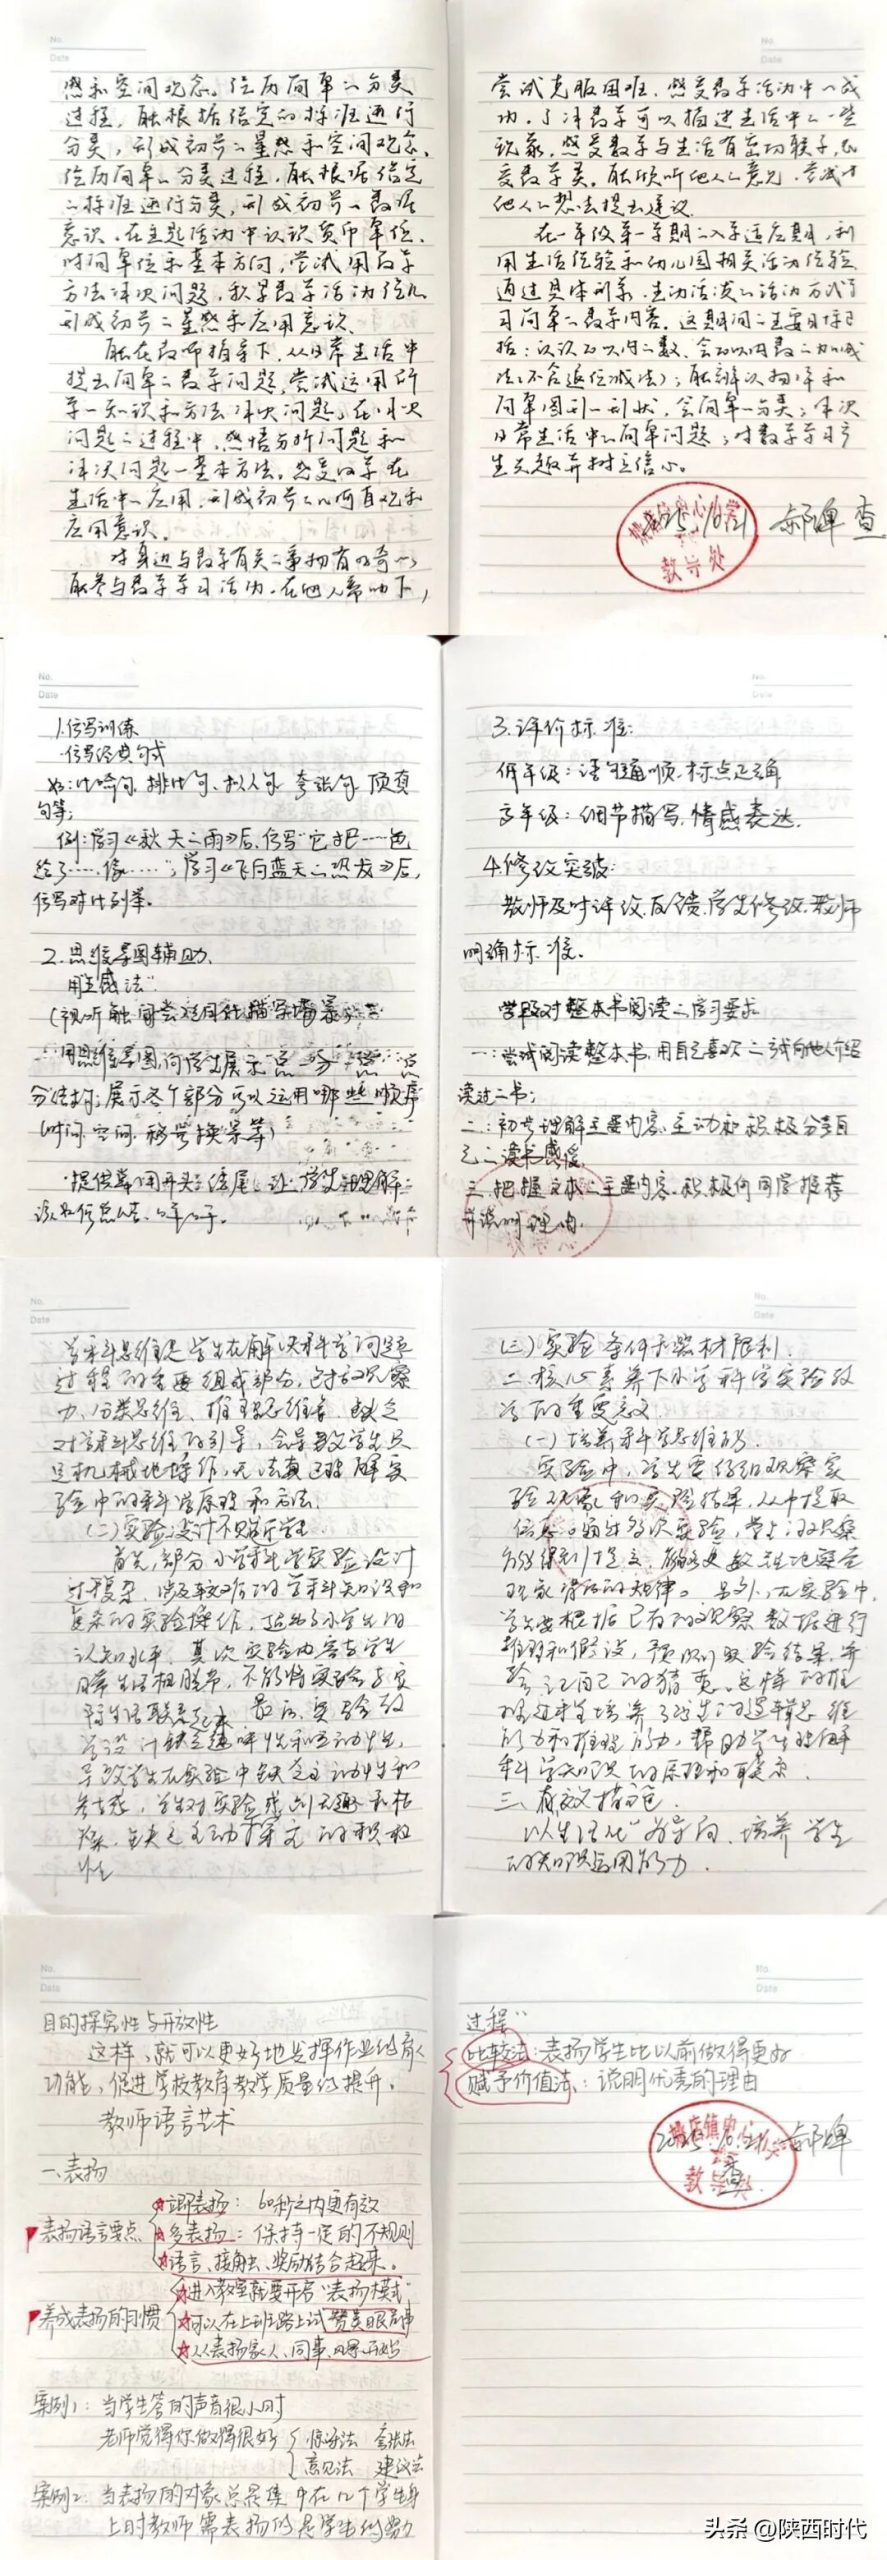 No.
Date
感和空间观念。经历简单的分类
过程，能根据给定的标准进行
分类，形成初步的量感和空间观念。
经历简单的分类过程，能根据给定
的标准进行分类，形成初步的数据
意识。在主题活动中认识货币单位、
时间单位和基本方向，尝试用数学
方法解决问题，积累数学活动经
形成初步的量感和应用意识。
能在教师指导下，从日常生活中
提出简单的数学问题，尝试运用所
学的知识和方法解决问题，在解决
问题的过程中，感悟分析问题和
解决问题的基本方法，感受数学在
生活中的应用，形成初步的几何直观和
应用意识。
对身边与数学有关的事物有好奇心
能参与数学学习活动。在他人帮助下，
No.
Date
尝试克服困难，感受数学活动中的成
功。了解数学可以描述生活中的一些
现象，感受数学与生活有密切联系，感
受数学美。能倾听他人的意见，尝试对
他人的想法提出建议。
在一年级第一学期的入学适应期，利
用生活经验和幼儿园相关活动经验
通过具体形象、生动活泼的活动方式学
习简单的数学内容。这期间的主要目标包
括：认识20以内的数，会20以内数的加减
法（不含退位减法）；能辨认物体和
简单图形的形状，会简单的分类；解决
日常生活中的简单问题；对数学学习产
生兴趣并树立信心。
教导处
查
No.
Date
1.仿写训练
·仿写经典句式
如：比喻句、排比句、拟人句、夸张句、顶真
句等；
例：学习《秋天的雨》后，仿写“它把……色
给了……，像……”；学习《飞向蓝天的恐龙》后，
仿写对比列举。
2.思维导图辅助、
用五感法”
(视听触闻尝
用思维导图向学生展示“总 分
分”结构；展示各个部分可以运用哪些顺序
(时间、空间、移步换景等)
·提供常用开头、结尾，让学生理解
No.
Date
3.评价标准：
低年级：语句通顺、标点正确
高年级：细节描写、情感表达.
4.修改实战：
教师及时评改、反馈，学生修改，教师
明确标准。
学段对整本书阅读的学习要求
一：尝试阅读整本书，用自己喜欢的方式向他人介绍
读过的书；
二：初步理解主要内容，主动和积极分享自
己的读书感受
三、把握文本的主要内容，积极向同学推荐
并说明理由.
No.
Date
学科思维是学生在解决科学问题
过程的重要组成部分，包括观察
力、分类思维、推理思维等。缺乏
对学科思维的引导，会导致学生只
是机械地操作，无法真正理解实
验中的科学原理和方法.
(二)实验设计不贴近学生
首先，部分小学科学实验设计
过于复杂，涉及较难的学科知识和
复杂的实验操作，超出了小学生的
认知水平。其次，实验内容与学生
日常生活相脱节，不能将实验与实
际生活联系起来。最后，实验教
学设计缺乏趣味性和互动性，
导致学生在实验中缺乏主动性和
参与感，学生对实验感到无趣和枯
燥，缺乏主动探究的积极
性
No.
Date
(三)实验条件和器材限制.
二、核心素养下小学科学实验教
学的重要意义.
(一)培养科学思维能
实验中，学生要仔细观察实
验现象和实验结果，从中提取
信息。通过多次实验，学生的观察
能力得到提高，能够更敏锐地察觉
现象背后的规律。另外，在实验中，
学生要根据已有的观察数据进行
推理和假设，预测实验结果，并
验证自己的猜想。这样的推
理过程培养了学生的逻辑思维
能力和推理能力，帮助学生理解
科学知识的原理和联系.
三、有效措施.
以“生活化”为导向，培养学生
的知识运用能力.
No.
Date
目的探究性与开放性
这样，就可以更好地发挥作业的育人
功能，促进学校教育教学质量的提升。
教师语言艺术
一、表扬
表扬语言要点
立即表扬：60秒之内更有效
多表扬：保持一定的不规则
语言、接触、奖励结合起来。
养成表扬的习惯
进入教室就要开启“表扬模式”
可以在上班路上试赞美眼前事
从表扬家人、同事、同学开始
案例1：当学生答的声音很小时
老师觉得你做得很好
惊讶法 夸张法
意见法 建议法
案例2：当表扬的对象总是集中在几个学生身
上时教师需表扬的是学生的努力
No.
Date
过程”
比较法：表扬学生比以前做得更好
赋予价值法：说明优秀的理由
教导处
查
头条 @陕西时代